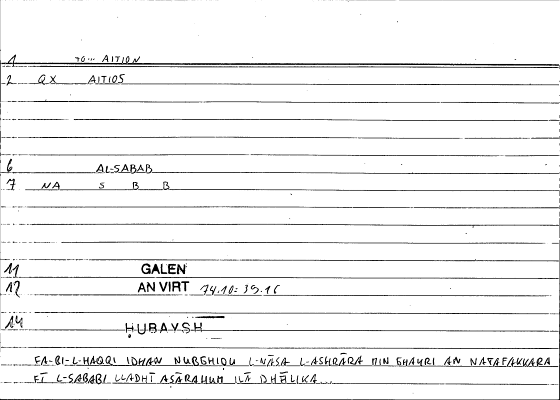 1 TO... AITION
2 QX AITIOS
6 AL-SABAB
7 NA S B B
11 GALEN
12 AN VIRT 74.10: 39.16
14 ḤUBAYSH
FA-BI-L-ḤAQQI IDHAN NUBGHIḌU L-NĀSA L-ASHRĀRA MIN GHAYRI AN NATAFAKKARA
FĪ L-SABABI LLADHĪ AṢĀRAHUM ILĀ DHĀLIKA...